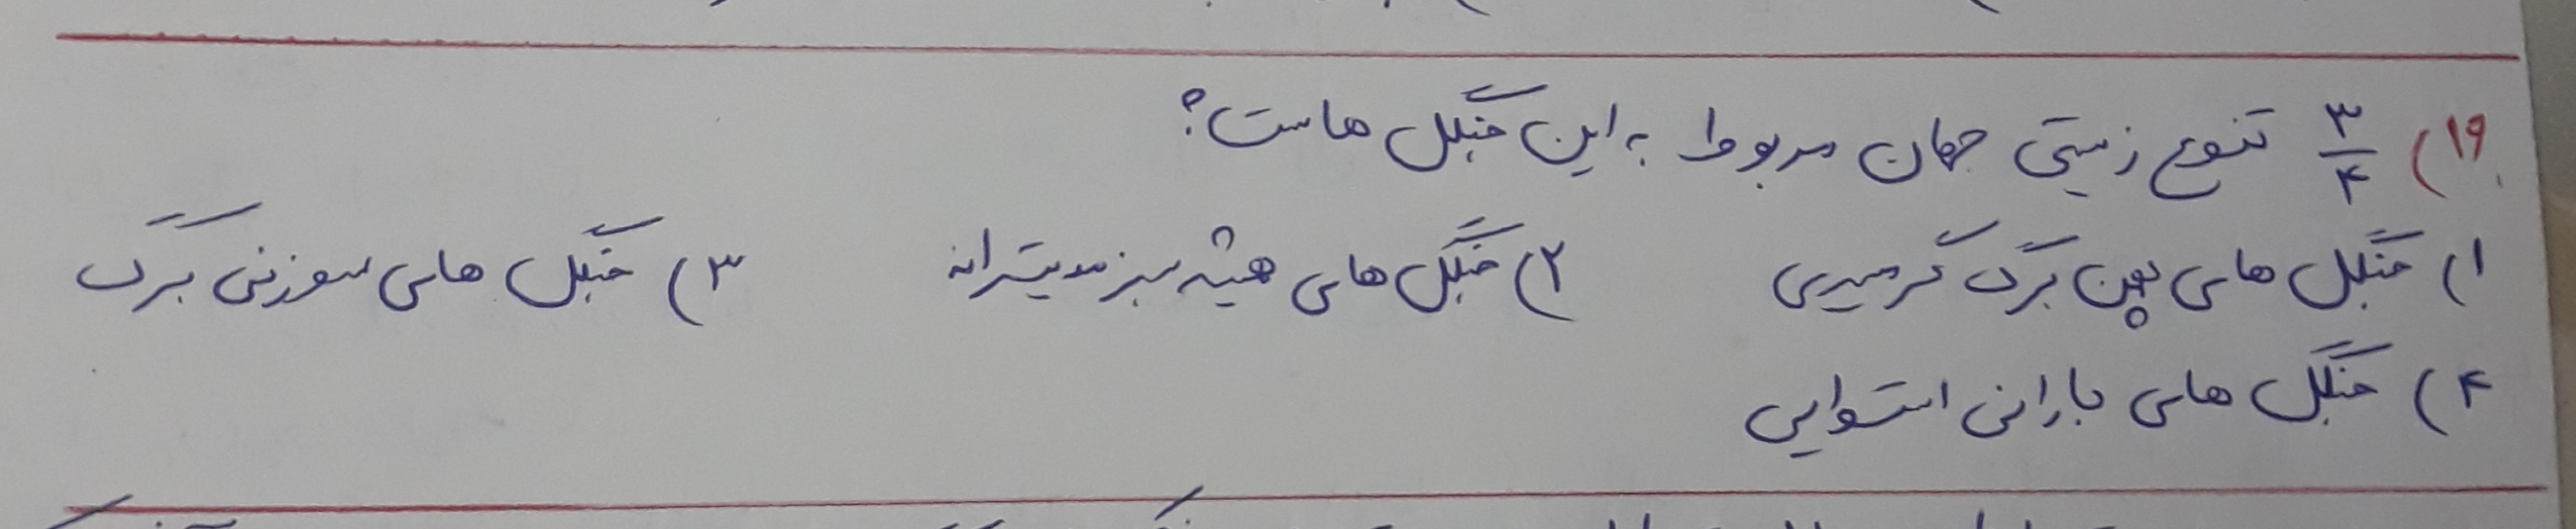 ۱۹) ۳/۴ تنوع زیستی جهان مربوط به این جنگل هاست؟
۱) جنگل های پهن برگ گرمسیری ۲) جنگل های همیشه سبز مدیترانه ۳) جنگل های سوزنی برگ
۴) جنگل های بارانی استوایی